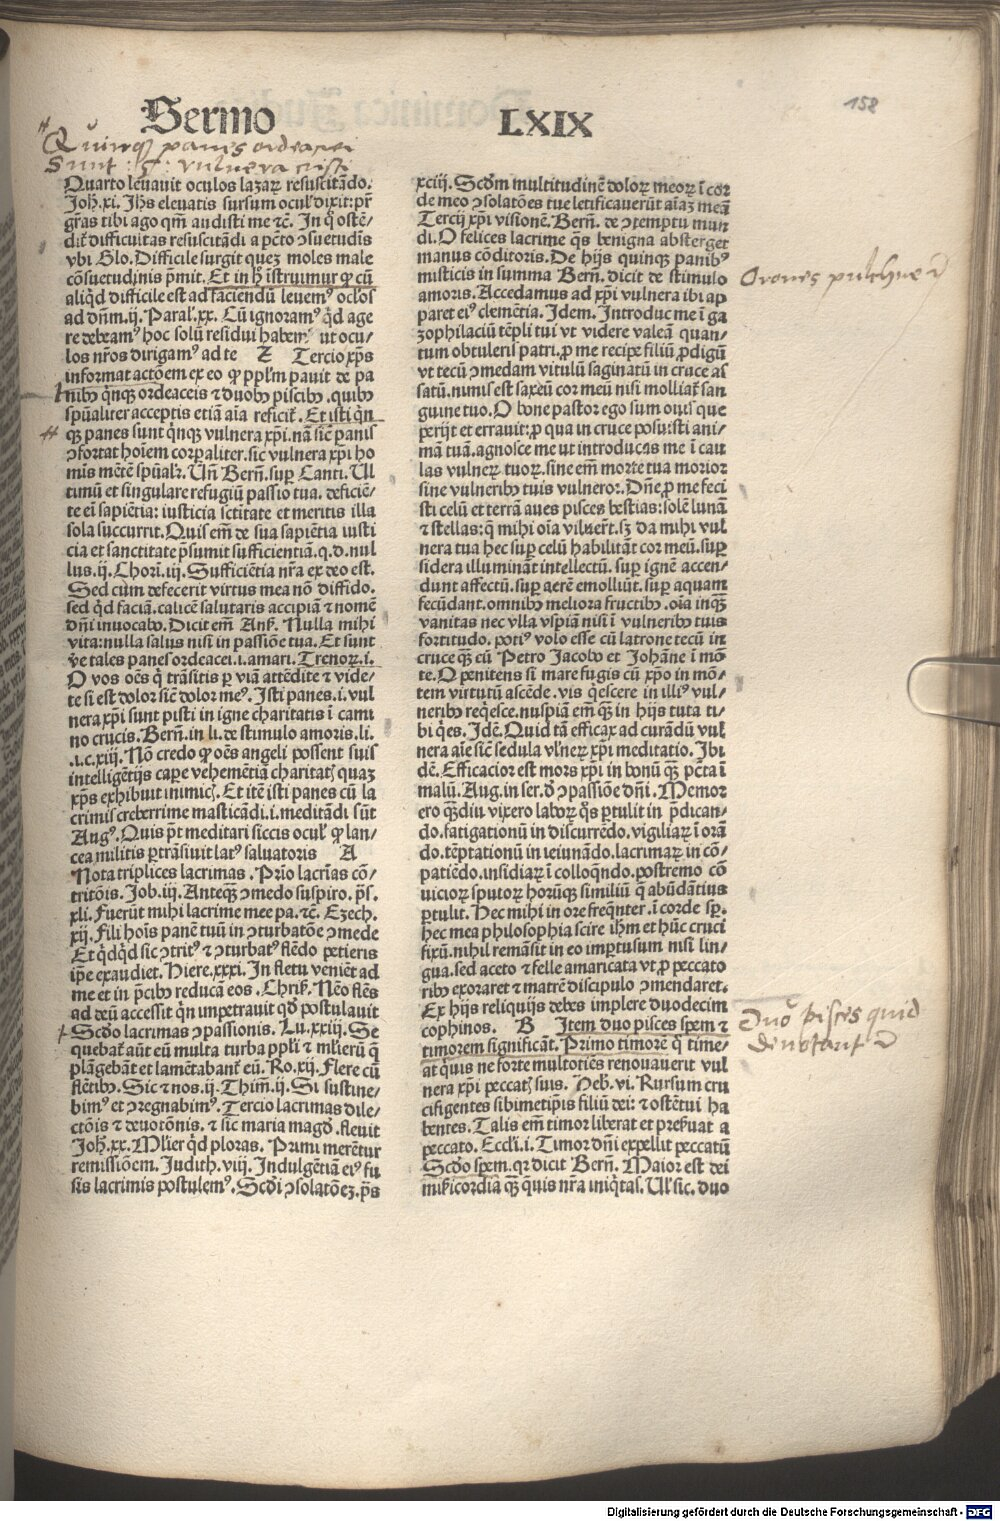 158
Sermo LXIX
Quinqȝ panes ordeacei
Sunt .5. vulnera cristi
Quarto leuauit oculos lazaꝝ resuscitādo.
Joh̄.xi. Jhs eleuatis sursum oculꝭ dixit: pr̄
gr̄as tibi ago qm̄ audisti me ⁊c̄. In qͦ ostē/
dit̄ difficultas resuscitādi a pc̄to ↄsuetudīs
vbi Glo. Difficile surgit queȝ moles male
cōsuetudinis p̄mit. Et in hͦ īstruimur ꝙ cū
aliqͥd difficile est ad faciendū leuemꝰ oclōs
ad dn̄m.ij. Paral̓.xx. Cū ignoramꝰ qͥd age
re debeamꝰ hoc solū residui habemꝰ vt ocu/
los nr̄os dirigamꝰ ad te Z Tercio xp̄s
informat actōem ex eo ꝙ ppl̄m pauit de pa
nibꝰ qͥnqȝ ordeaceis ⁊ duobꝰ piscibꝰ .quibꝰ
spūaliter acceptis etiā aīa reficit̄ . Et isti qͥn
qȝ panes sunt qͥnqȝ vulnera xp̄i.nā sic̄ panis
ↄfortat hoīem corꝑaliter.sic vulnera xp̄i ho
mīs mētē spūalr̄. Un̄ Bern̄.suꝑ Canti. Ul
timū et singulare refugiū passio tua. deficiē/
te eī sapiētia: iusticia sctītate et meritis illa
sola succurrit. Quis em̄ de sua sapiētia iusti
cia et sanctitate p̄sumit sufficientiā.q.d.nul
lus.ij. Chorī.iij. Sufficiētia nr̄a ex deo est.
Sed cum defecerit virtus mea nō diffido.
sed qͥd faciā.calicē salutaris accipiā ⁊ nomē
dn̄i inuocabo. Dicit em̄ Anß. Nulla mihi
vita:nulla salus nisi in passiōe tua. Et sunt
v̓e tales panes ordeacei.i.amari. Trenoꝝ.i.
O vos oēs qͥ trāsitis ꝑ viā attēdite ⁊ vide/
te si est dolor sic̄ dolor meꝰ. Isti panes.i.vul
nera xp̄i sunt pisti in igne charitatis ī cami
no crucis. Bern̄.in li.de stimulo amoris.li.
.i.c.xiij. Nō credo ꝙ oēs angeli possent suis
intelligētijs caꝑe vehemētiā charitatꝭ quaȝ
xp̄s exhibuit inimicꝭ. Et itē isti panes cū la
crimis creberrime masticādi.i.meditādi sūt
Augꝰ. Quis pt̄ meditari siccis oculꝭ ꝙ lan/
cea militis ꝑtrāsiuit latꝰ saluatoris A
Nota triplices lacrimas . Prīo lacrīas cō/
tritōis. Job.iij. Anteqȝ ↄmedo suspiro. p̄s.
xli. Fuerūt mihi lacrime mee pa. ⁊c̄. Ezech.
xij. Fili hoīs panē tuū in ↄturbatōe ↄmede
Et qͥdqͥd sic ↄtritꝰ ⁊ ↄturbatꝰ flēdo petieris
ip̄e exaudiet. Hiere.xxxi. In fletu veniēt ad
me et in p̄cibꝰ reducā eos . Chriß. Nēo flēs
ad deū accessit qͥn impetrauit qd̓ postulauit
Scd̓o lacrimas ↄpassionis. Lu.xxiij. Se
quebat̄ aūt eū multa turba ppl̓i ⁊ ml̓ierū q̄
plāgebāt et lamētabant̄ eū. Ro.xij. Flere cū
flētibꝰ. Sic ⁊ nos.ij. Thim̄.ij. Si sustine/
bimꝰ et ↄregnabimꝰ. Tercio lacrimas dile/
ctōis ⁊ deuotōnis. ⁊ sic maria magd̓. fleuit
Joh̄.xx. Ml̓ier qͥd ploras. Primi merētur
remissiōem. Judith.viij. Indulgētiā eiꝰ fu
sis lacrimis postulemꝰ. Scd̓i ↄsolatōeȝ.p̄s
xciij. Scd̓m multitudinē doloꝝ meoꝝ ī cor
de meo ↄsolatōes tue letificauerūt aīaȝ meā
Tercij xp̄i visionē. Bern̄. de ↄtemptu mun
di. O felices lacrime q̄s benigna absterget
manus cōditoris. De hijs quinqȝ panibꝰ
misticis in summa Bern̄. dicit de stimulo
amoris. Accedamus ad xp̄i vulnera ibi ap
paret eiꝰ clemētia. Idem. Introduc me ī ga
zophilaciū tēpli tui vt videre valeā quan/
tum obtuleris patri.ꝓ me recipe filiū ꝓdigū
vt tecū ↄmedam vitulū saginatū in cruce as
satū.nimis est saxeū cor meū nisi molliat̄ san
guine tuo. O bone pastor ego sum ouis que
perijt et errauit:ꝓ qua in cruce posuisti ani/
mā tuā.agnosce me vt introducas me ī cau
las vulneꝝ tuoꝝ.sine em̄ morte tua morior
sine vulneribꝰ tuis vulneror. Dn̄e ꝓ me feci
sti celū et terrā aues pisces bestias:solē lunā
⁊ stellas:q̄ mihi oīa vilueīt. sȝ da mihi vul
nera tua hec suꝑ celū habilitāt cor meū.suꝑ
sidera illumināt intellectū. suꝑ ignē accen/
dunt affectū.suꝑ aerē emolliūt.suꝑ aquam
fecūdant.omnibꝰ meliora fructibꝰ. oīa inqȝ
vanitas nec vlla vspiā nisi ī vulneribꝰ tuis
fortitudo. potiꝰ volo esse cū latrone tecū in
cruce qȝ cū Petro Jacobo et Johāne ī mō
te. O penitens si mare fugis cū xp̄o in mō/
tem virtutū ascēde. vis qͥescere in illiꝰ vul/
neribꝰ reqͥesce.nuspiā em̄ qȝ in hijs tuta ti/
bi qͥes. Idē. Quid tā efficax ad curādū vul
nera aīe sic̄ sedula vl̓neꝝ xp̄i meditatio. Ibi
dē. Efficacior est mors xp̄i in bonū qȝ pc̄ta ī
malū. Aug.in ser.d̓ ↄpassiōe dn̄i . Memor
ero qȝdiu vixero laboꝝ q̄s ꝑtulit in p̄dican/
do.fatigationū in discurrēdo.vigiliaꝝ ī orā
do.tēptationū in ieiunādo.lacrimaꝝ in cō/
patiēdo.insidiaꝝ ī colloqͥndo.postremo cō
uicioꝝ sputoꝝ horūqȝ similiū q̄ abūdātius
ꝑtulit. Hec mihi in ore freqͥnter.ī corde sꝑ.
hec mea philosophia scire ih̄m et hūc cruci
fixū.nihil remāsit in eo imꝑtusum nisi lin/
gua.sed aceto ⁊ felle amaricata vt ꝓ peccato
ribꝰ exoraret ⁊ matrē discipulo ↄmendaret.
Ex hijs reliquijs debes implere duodecim
cophinos. B Item duo pisces spem ⁊
timorem significāt. Primo timorē qͥ time/
at qͥuis ne forte multotiēs renouauerit vul
nera xp̄i peccatꝭ suis. Heb̓. vi. Rursum cru
cifigentes sibimetip̄is filiū dei: ⁊ ostētui ha
bentes. Talis em̄ timor liberat et preßuat a
peccato. Eccl̓i.i. Timor dn̄i expellit peccatū
Scd̓o spem.qr dicit Bern̄. Maior est dei
mīßicordia qȝ qͥuis nr̄a iniqͥtas. Ul̓ sic. duo
Duo pisces quid
denotant
Digitalisierung gefördert durch die Deutsche Forschungsgemeinschaft - DFG